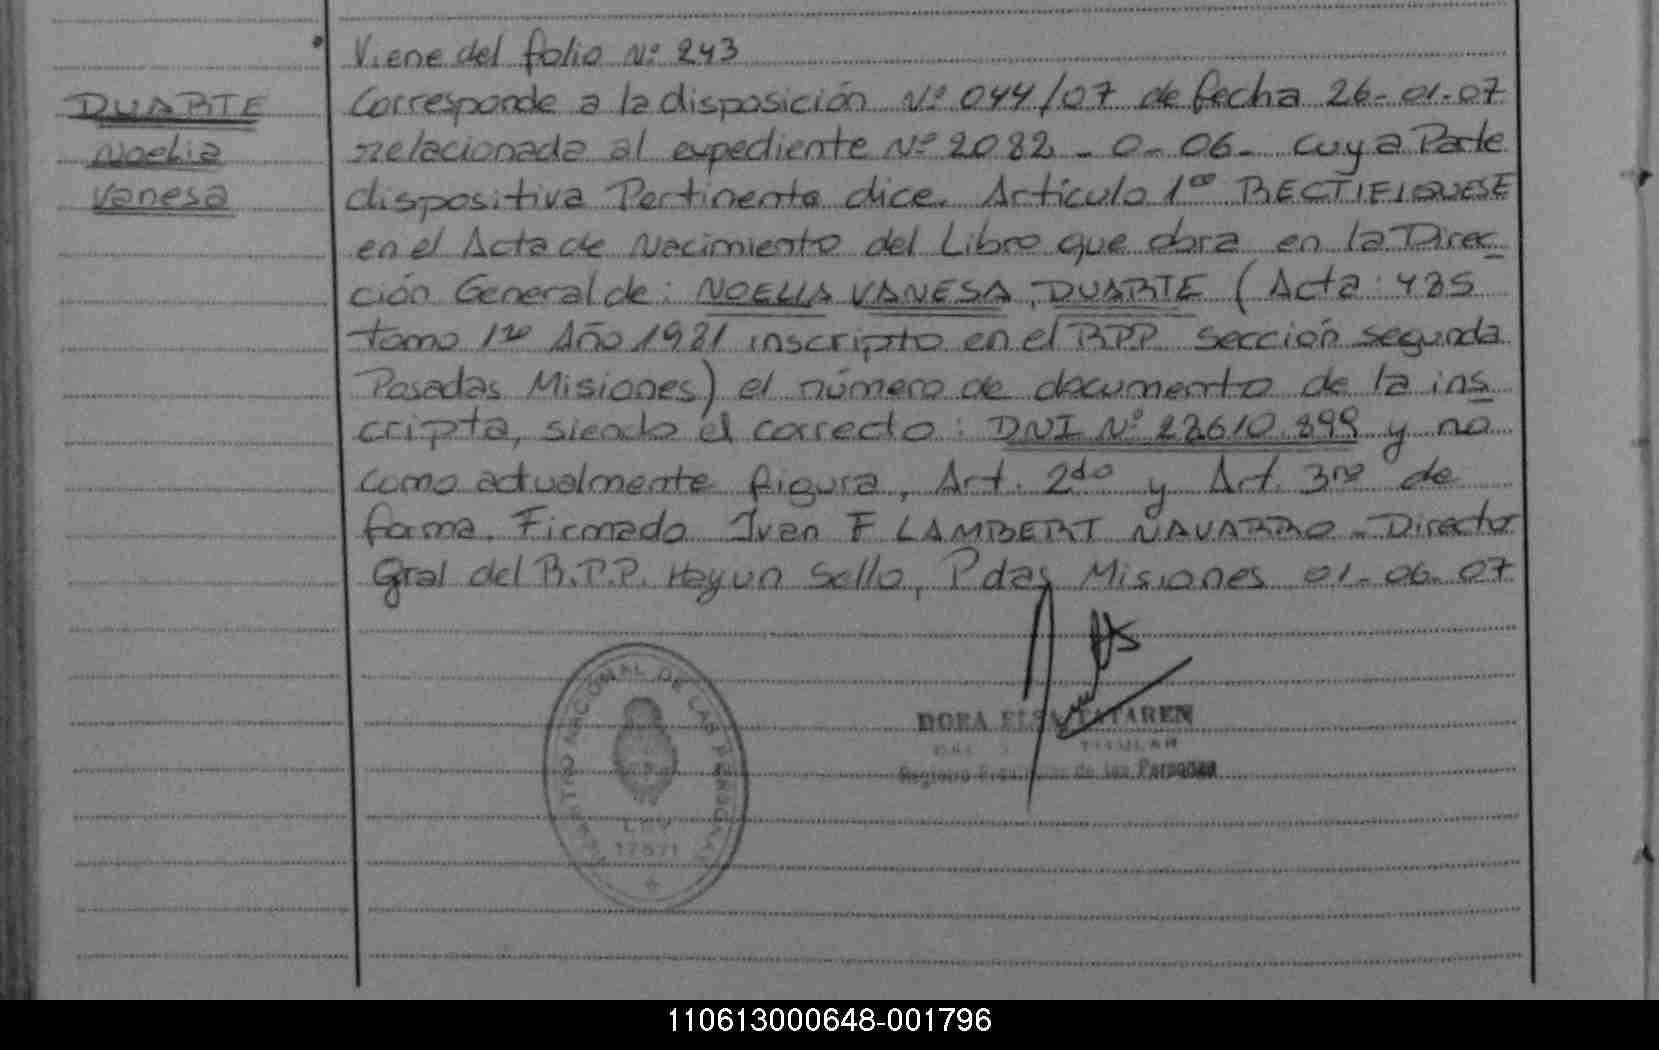 Viene del folio Nº 243
DUARTE
Noelia
Vanesa
Corresponde a la disposición Nº 044/07 de fecha 26-01-07
relacionada al expediente Nº 2082-0-06- cuya Parte
dispositiva Pertinente dice. Artículo 1ro RECTIFIQUESE
en el Acta de Nacimiento del Libro que obra en la Direc
ción General de: NOELIA VANESA, DUARTE (Acta: 485
tomo 1ro Año 1981 inscripto en el RPP sección segunda
Posadas Misiones) el número de documento de la ins
cripta, siendo el correcto: DNI Nº y no
como actualmente figura, Art. 2do y Art. 3ro de
forma. Firmado Ivan F LAMBERT NAVARRO - Director
Gral del R.P.P. Hay un Sello, Pdas Misiones 01-06-07
REGISTRO NACIONAL DE LAS PERSONAS
LEY
17671
DORA ELSA TATAREN
TITULAR
Registro Provincial de las Personas
110613000648-001796